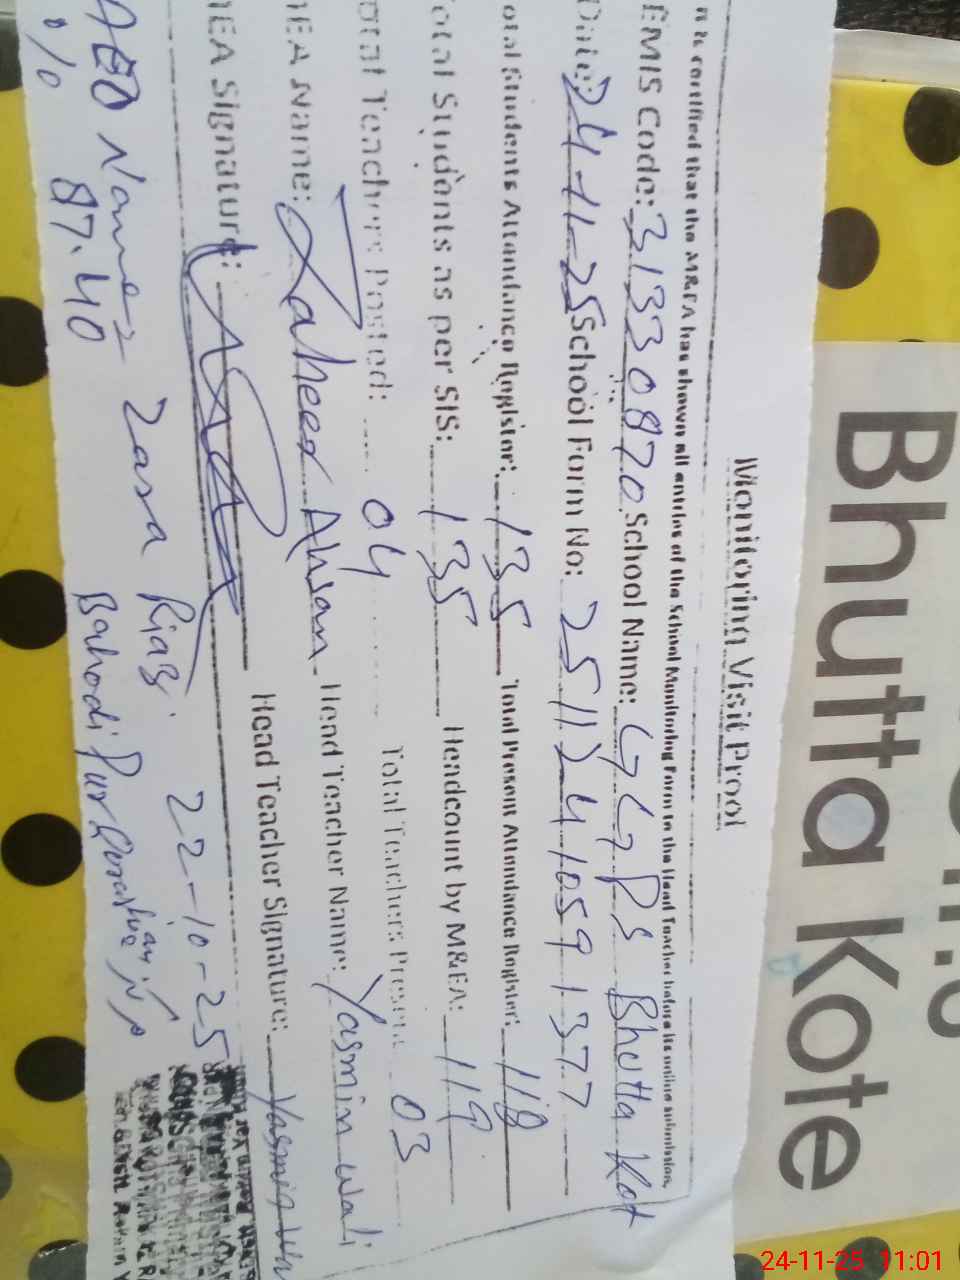 Monitoring Visit Proof
It is certified that the M&EA has shown all entries of the School Monitoring Form to the Head Teacher before its online submission.
EMIS Code: 31330870 School Name: GGPS Bhutta Kot
Date: 24-11-25 School Form No: 25112410591377
otal Students Attendance Register: 135 Total Present Attendance Register: 118
otal Students as per SIS: 135 Headcount by M&EA: 119
otal Teachers Posted: 04 Total Teachers Present: 03
EA Name: Zaheer Ahsan Head Teacher Name: Yasmin Wali
EA Signature: Head Teacher Signature: Yasmin
AEO Name = Zara Riaz. 22-10-25
% 87.40
Bhutta Kote
24-11-25 11:01